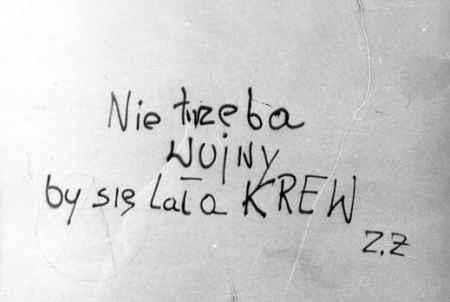 Nie trzeba
WOJNY
by się Lała KREW
Z.Z